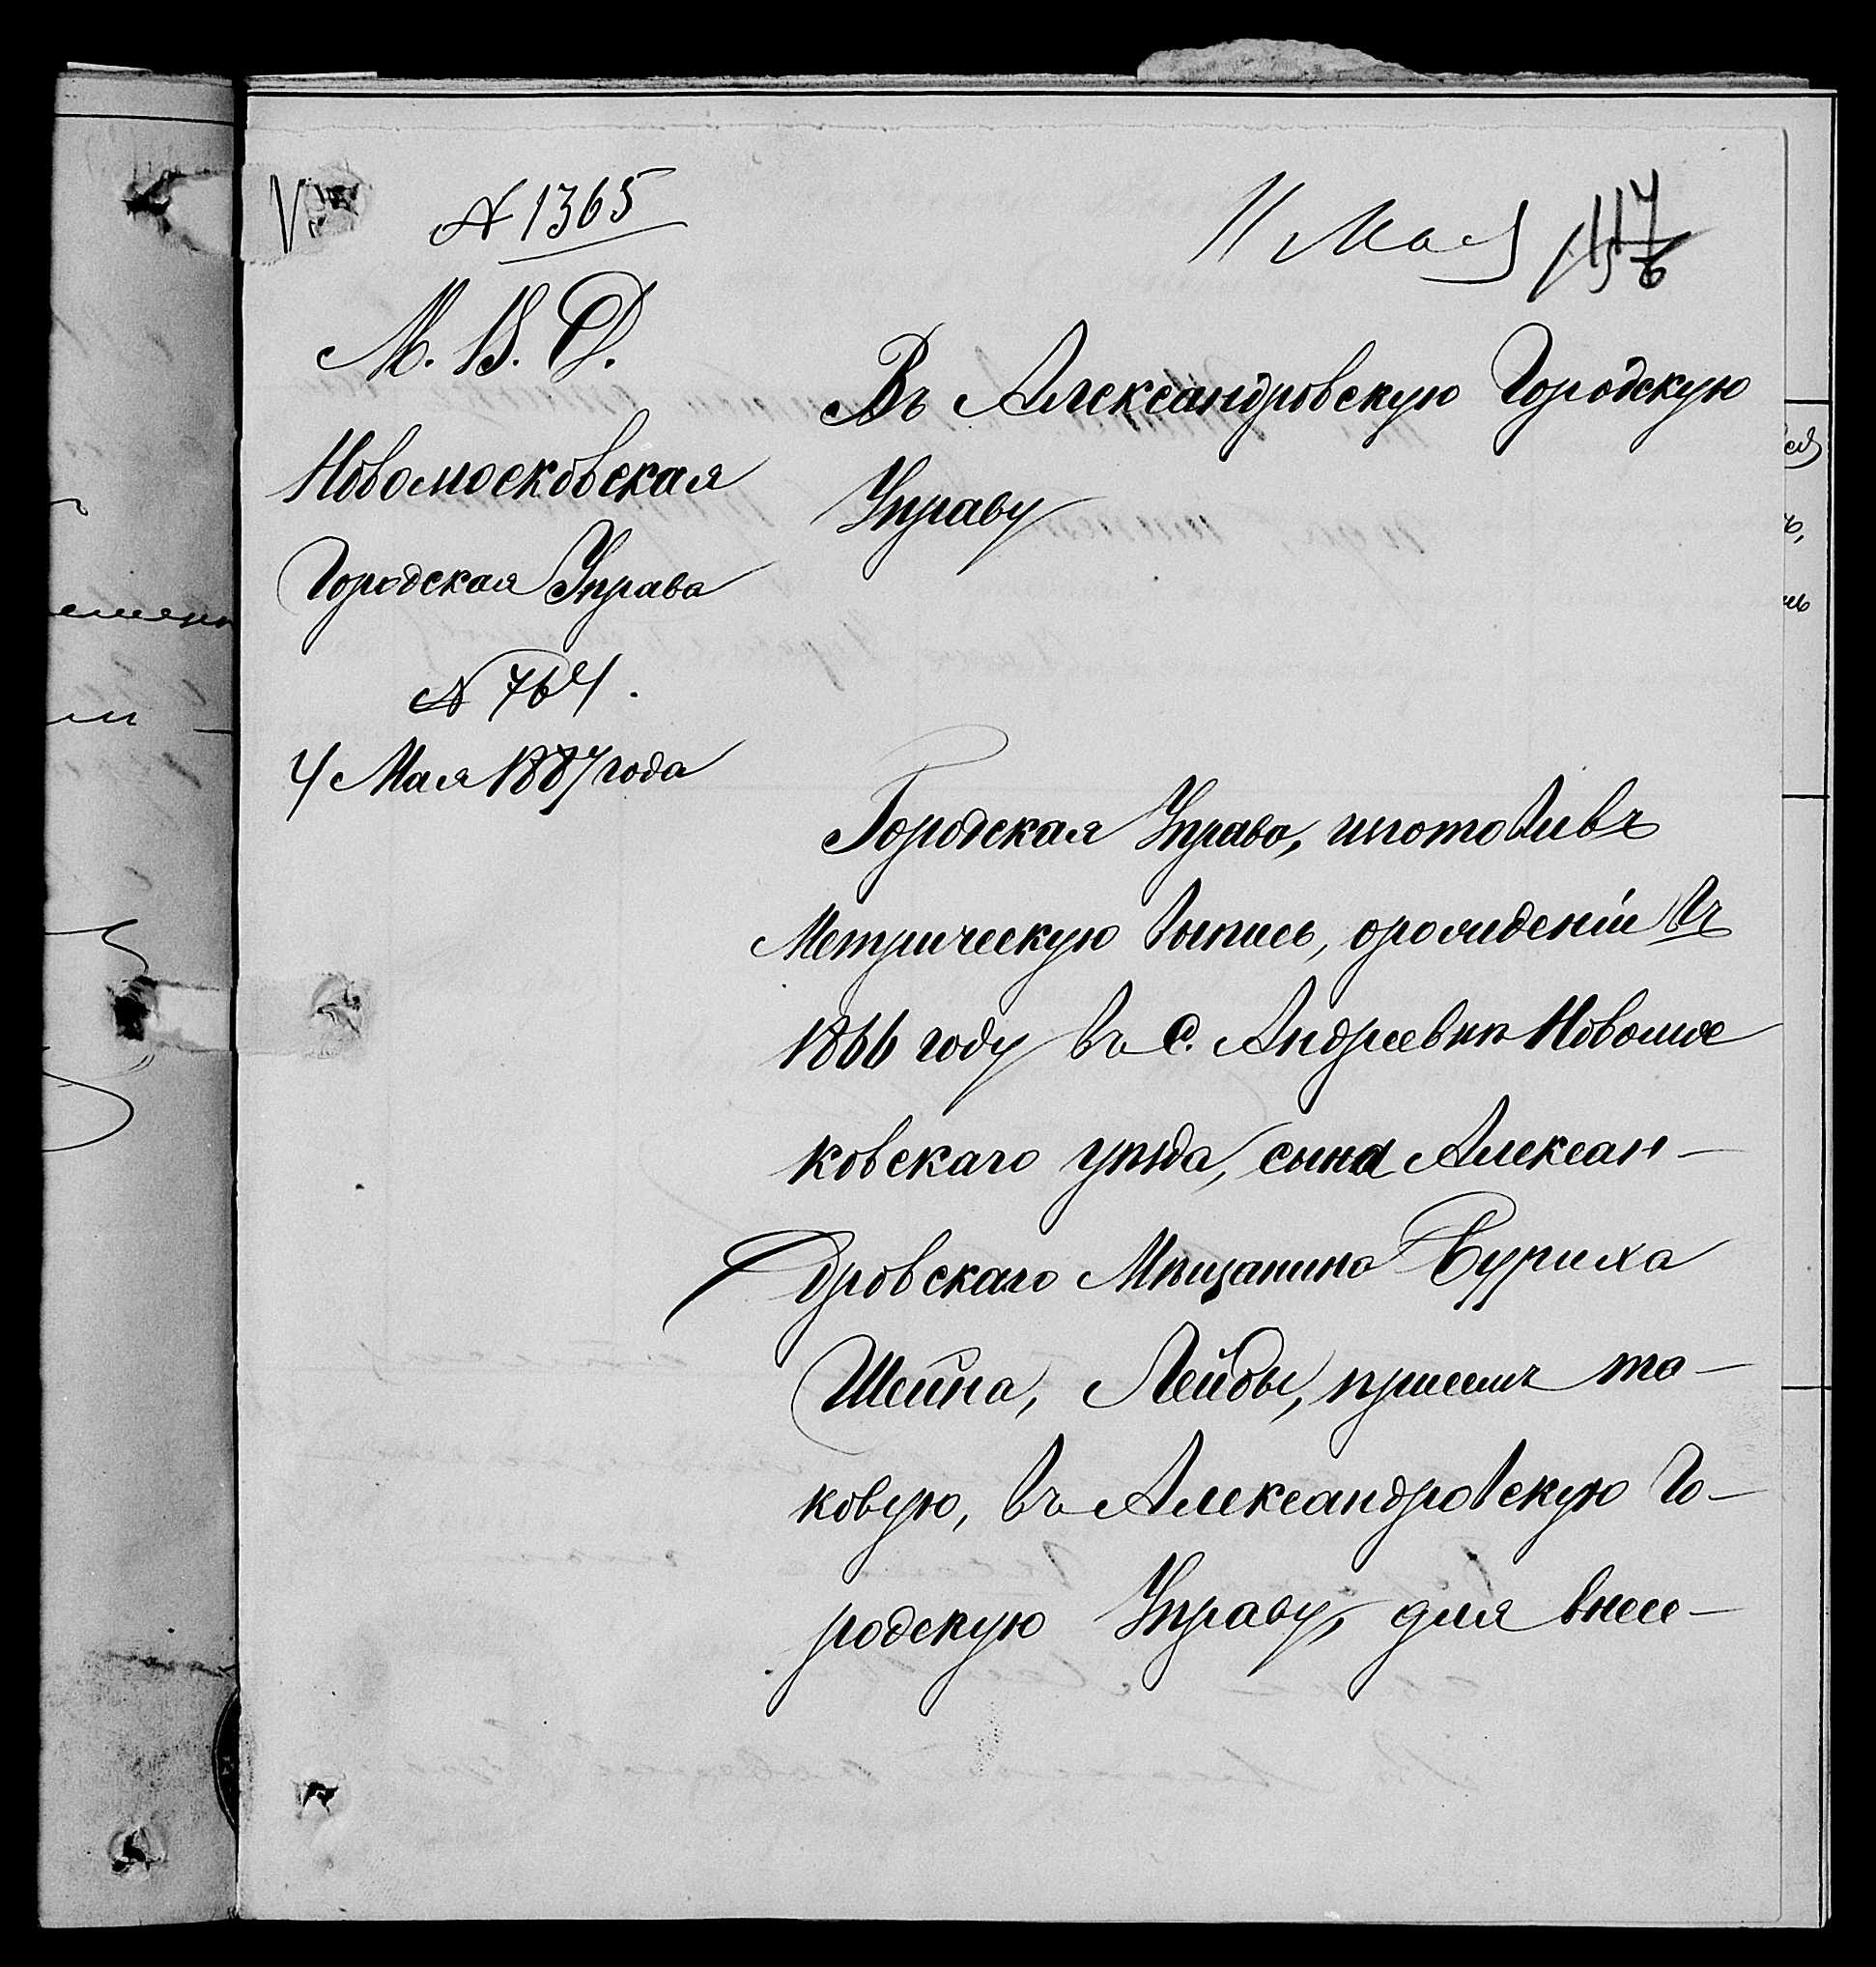 № 1365
11 Мая
117
М. В. Д.
Новомосковская
Городская Управа
№ 764.
4 Мая 1887 года
Въ Александровскую Городскую
Управу
Городская Управа, изготовивъ
Метрическую выпись, о рождении въ
1866 году въ с. Андреевкѣ Новомос
ковскаго уѣзда, сына Алексан-
дровскаго Мѣщанина
Шейна, Лейбы, та-
ковую, въ Александровскую Го-
родскую Управу, для внесе-